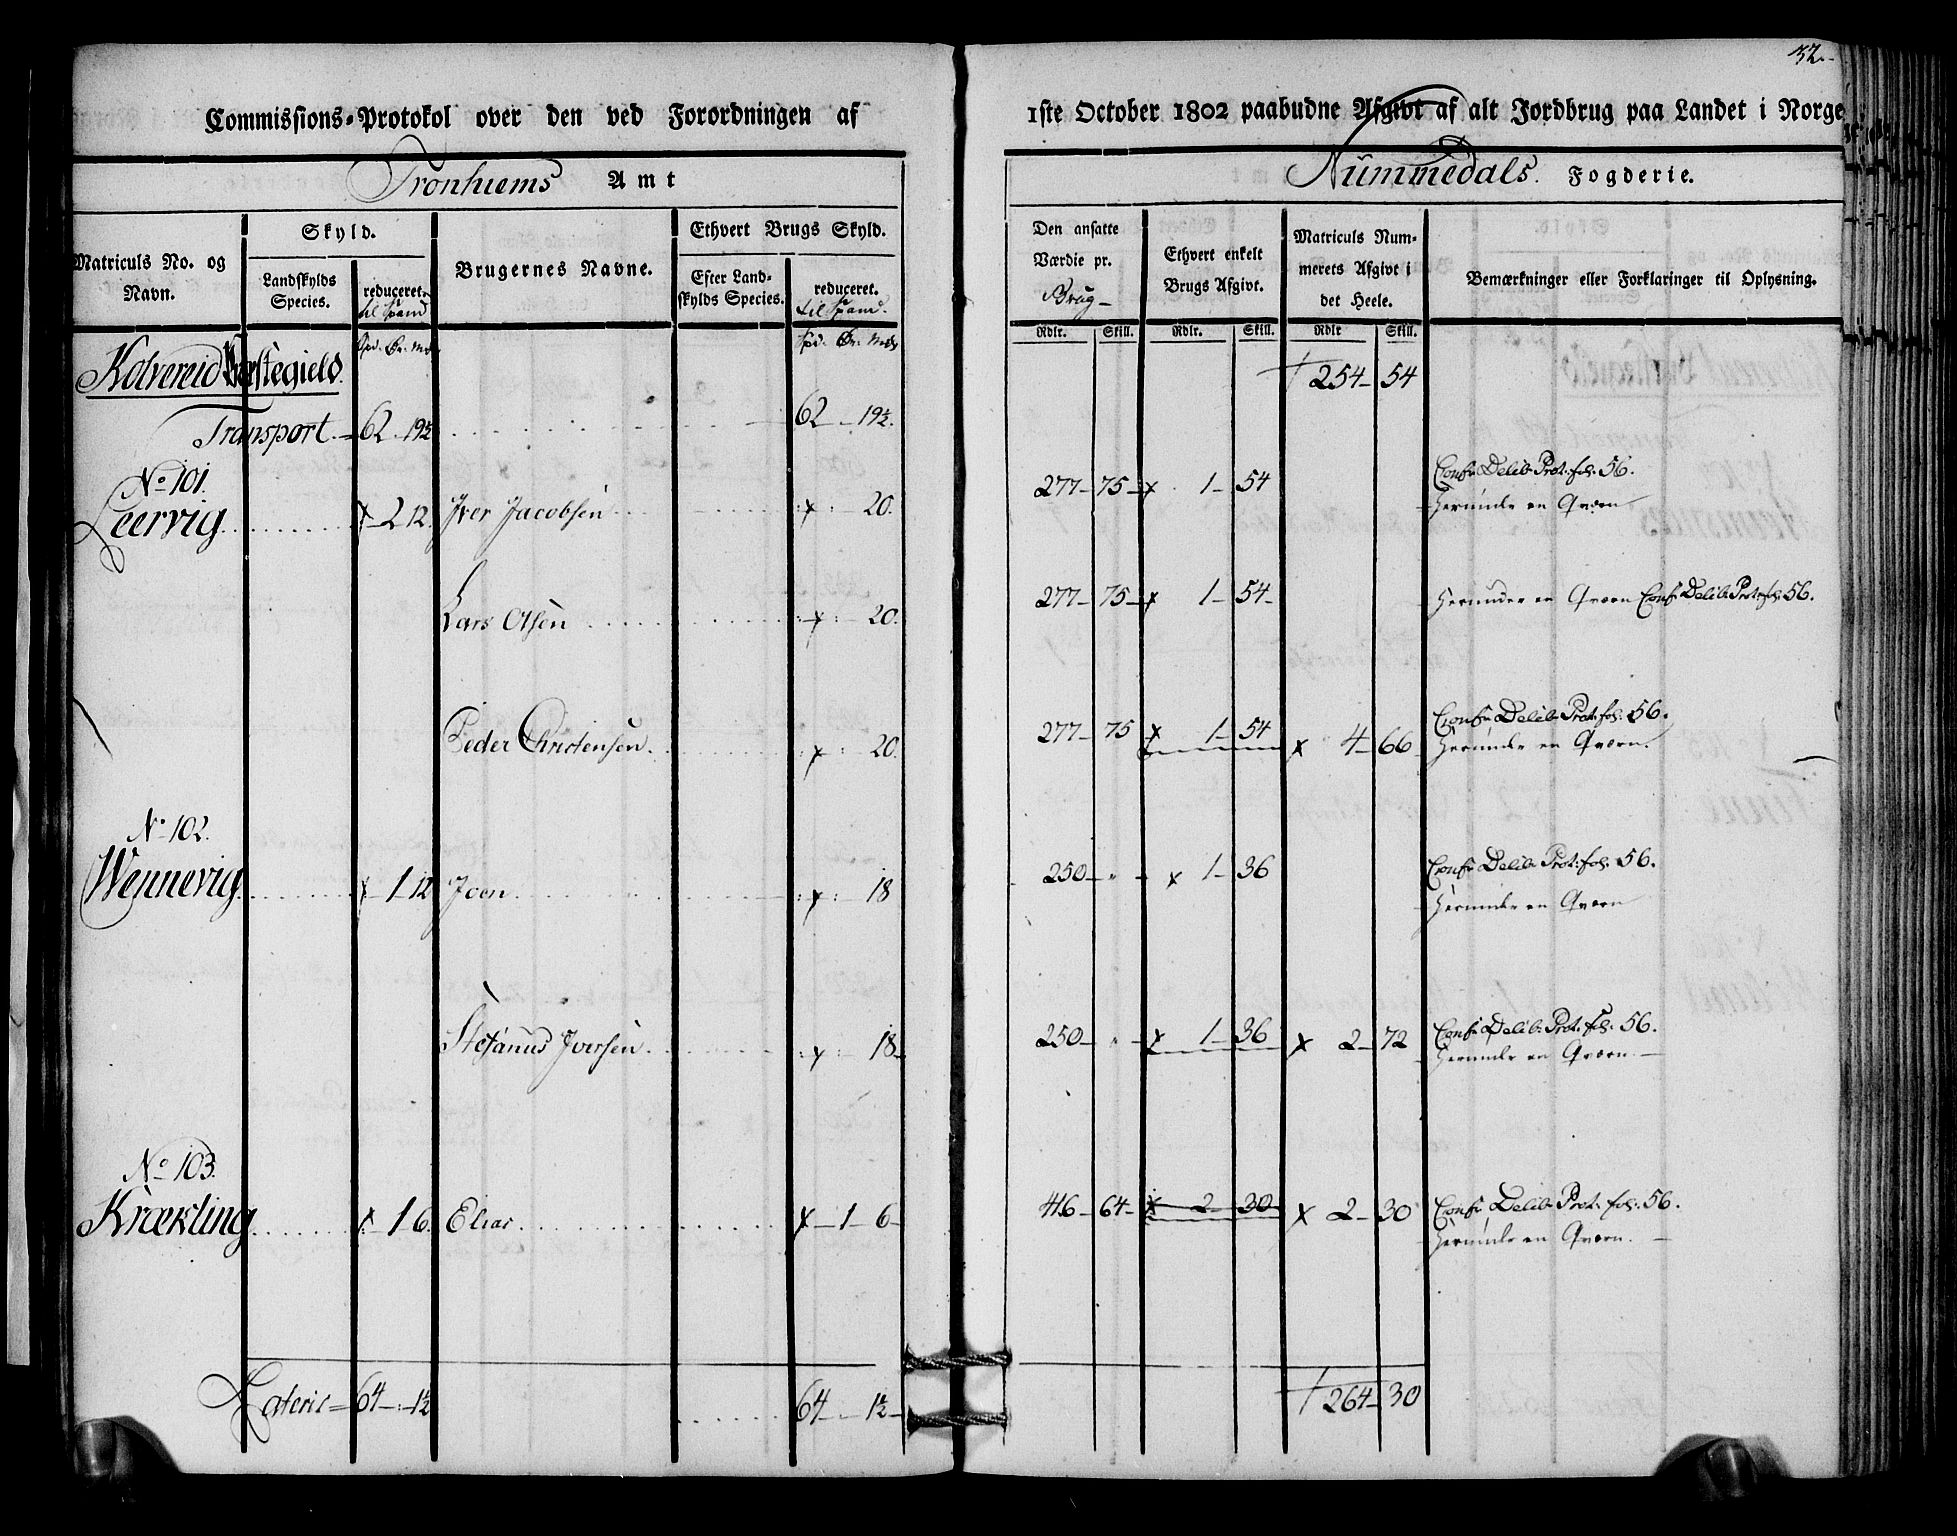 32.
Commissions-Protokol over den ved Forordningen af
1ste October 1802 paabudne Afgivt af alt Jordbrug paa Landet i Norge.
Tronhiems Amt
Nummedals. Fogderie.
Matriculs No. og Navn.
Skyld.
Landskylds Species.
reduceret. til Spand
Brugernes Navne.
Ethvert Brugs Skyld.
Efter Land-
skylds Species.
reduceret. til Spand.
Den ansatte
Værdie pr.
Brug
Ethvert enkelt
Brugs Afgivt.
Matriculs Num-
merets Afgivt i
det Heele.
Bemærkninger eller Forklaringer til Oplysning.
Rdlr. Skill. Rdlr. Skill. Rdlr Skill.
Spd. Ør. Mrk Spd. Ør. Mrk
Kolvereid Præstegield. 254 54
Transport. 62 19½ 62 19½
No 101.
Leervig 2 12. Iver Jacobsen 20. 277 75 1 54 Conf: Delib: Prot: fol: 56.
Herunder en Qværn
Lars Olsen 20. 277 75 1 54 Herunder en Qværn Conf: Delib: Prot: fol: 56.
Peder Christensen. 20. 277 75 1 54 4 66 Conf: Delib: Prot: fol: 56.
Herunder en Qværn.
No 102.
Wennevig 1 12 Joen 18 250 " 1 36 Conf: Delib: Prot: fol: 56.
Herunder en Qværn
Stefanus Iversen 18 250 " 1 36 2 72 Conf: Delib: Prot: fol: 56.
Herunder en Qværn.
No 103.
Krækling 1 6. Elias 1 6 416 64 2 30 2 30 Conf: Delib: Prot: fol: 56.
Herunder en Qværn.
Lateris 64 1½ 64 1½ 264 30